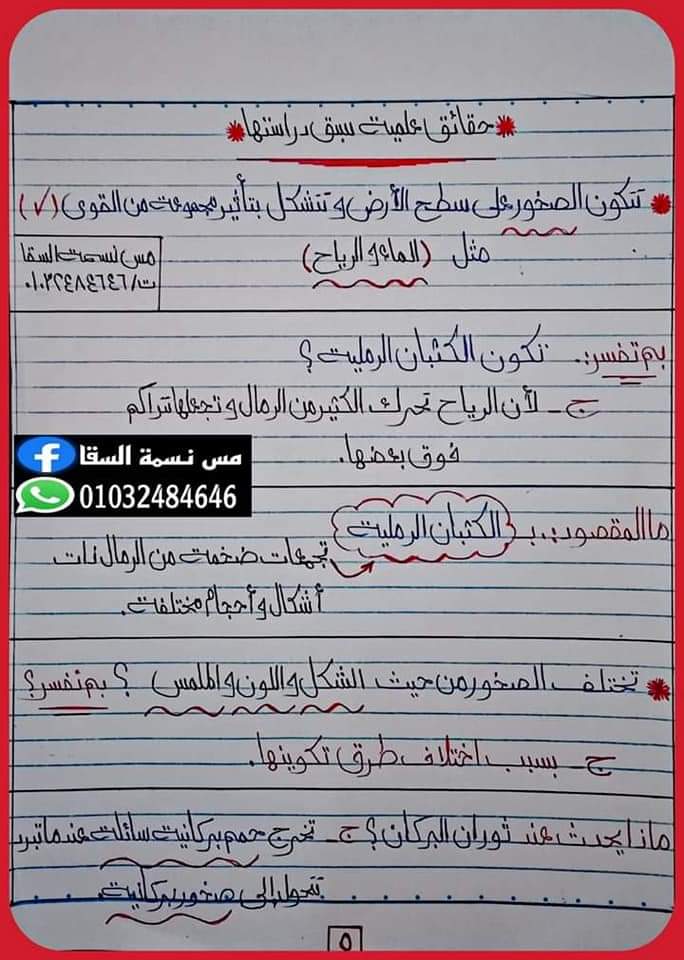 * حقائق علمية سبق دراستها *
* تتكون الصخور على سطح الأرض وتتشكل بتأثير مجموعة من القوى (✓)
مثل (الماء والرياح)
مس نسمة السقا
ت/ ٠١٠٣٢٤٨٤٦٤٦
بم تفسر:. تكون الكثبان الرملية ؟
ج - لأن الرياح تحرك الكثير من الرمال وتجعلها تتراكم
فوق بعضها.
مس نسمة السقا
01032484646
ما المقصود:. بـ الكثبان الرملية
تجمعات ضخمة من الرمال ذات
أشكال وأحجام مختلفة.
* تختلف الصخور من حيث الشكل واللون والملمس ؟ بم تفسر؟
ج - بسبب اختلاف طرق تكوينها.
ماذا يحدث عند ثوران البركان ؟ ج - تخرج حمم بركانية سائلة عندما تبرد
تتحول إلى صخور بركانية.
٥